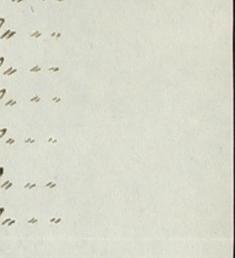 " " "
" " "
" " "
" " "
" " "
" " "